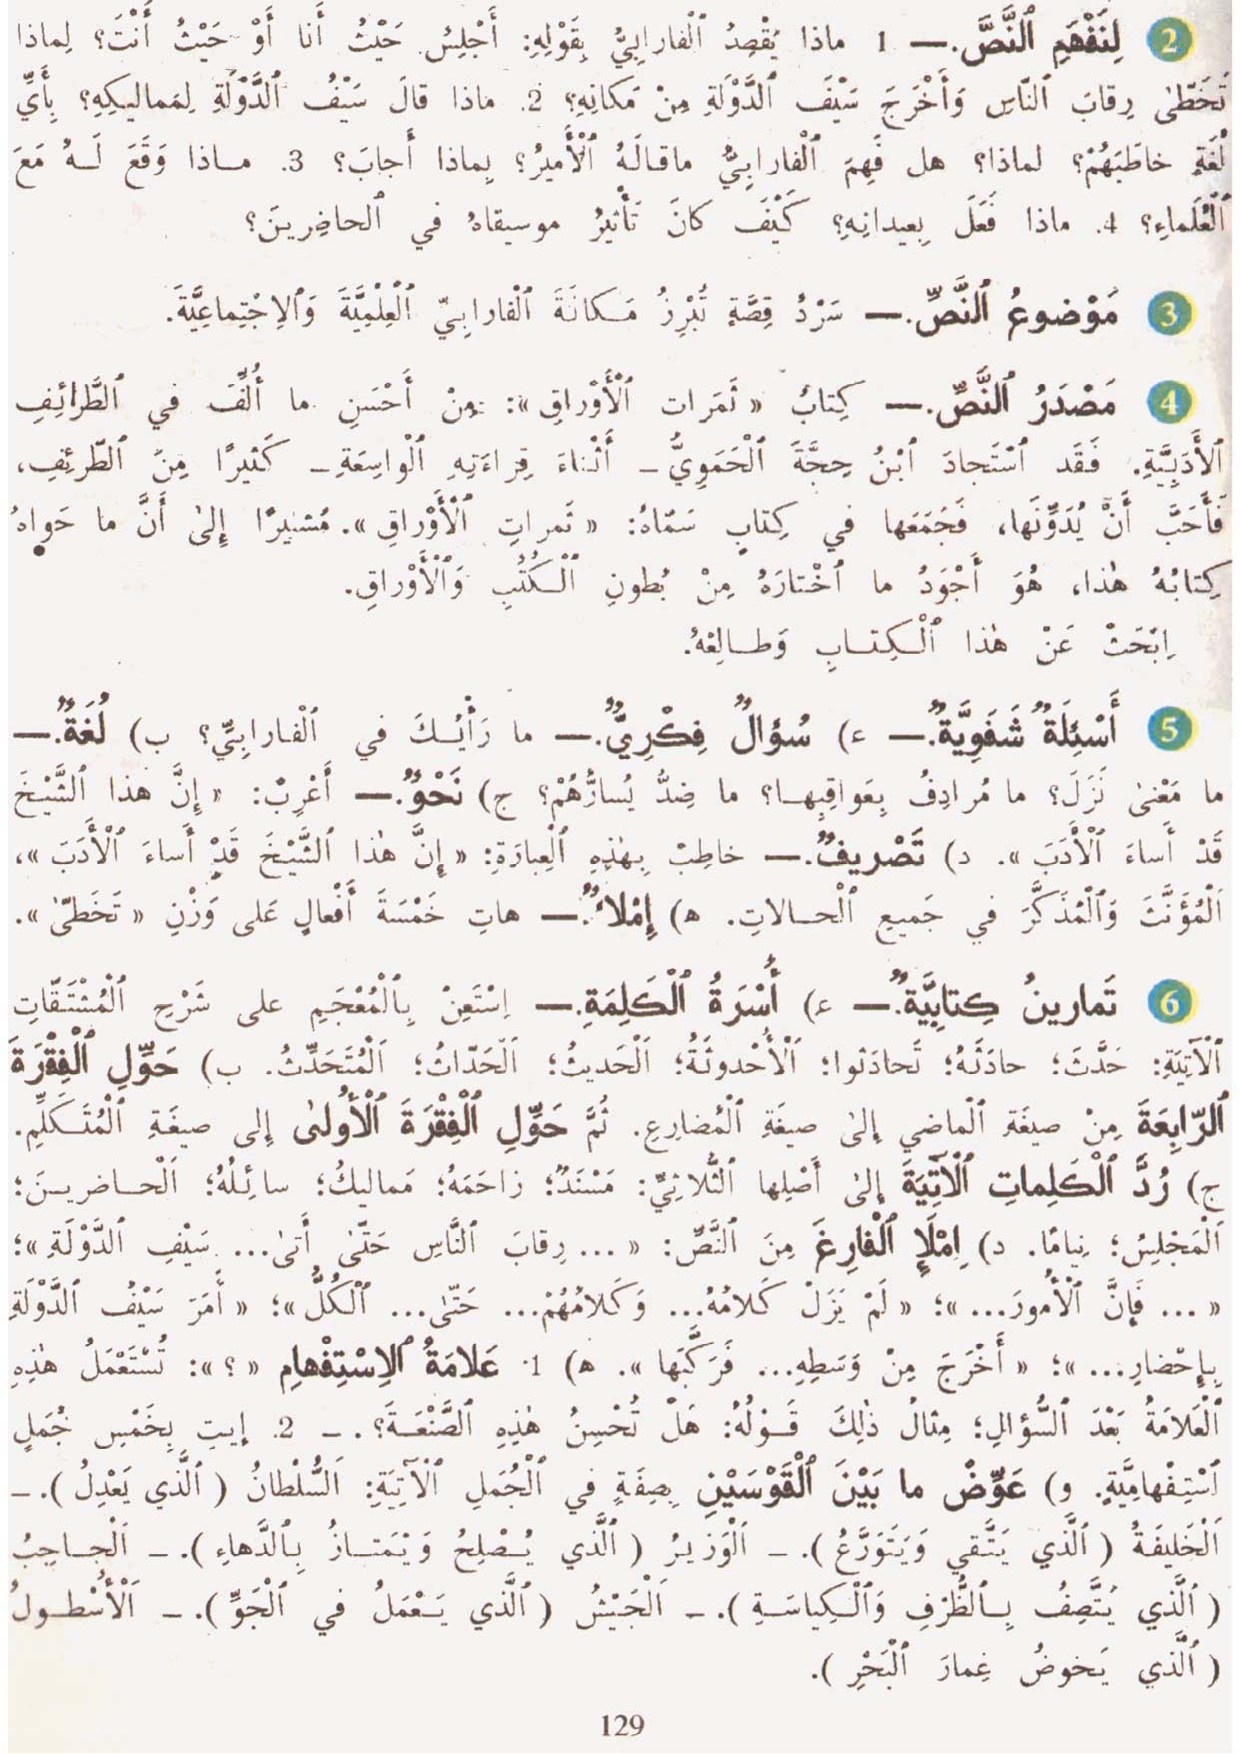 2 لِنَفْهَمِ ٱلنَّصَّ.— 1 ماذا يَقْصِدُ ٱلْفارابِيُّ بِقَوْلِهِ: أَجْلِسُ حَيْثُ أَنا أَوْ حَيْثُ أَنْتَ؟ لِماذا
تَخَطّىٰ رِقابَ ٱلنّاسِ وَأَخْرَجَ سَيْفَ ٱلدَّوْلَةِ مِنْ مَكانِهِ؟ 2. ماذا قالَ سَيْفُ ٱلدَّوْلَةِ لِمَماليكِهِ؟ بِأَيِّ
لُغَةٍ خاطَبَهُمْ؟ لماذا؟ هل فَهِمَ ٱلْفارابِيُّ ماقالَهُ ٱلْأَميرُ؟ بِماذا أَجابَ؟ 3. ماذا وَقَعَ لَهُ مَعَ
ٱلْعُلَماءِ؟ 4. ماذا فَعَلَ بِعيدانِهِ؟ كَيْفَ كانَ تَأْثيرُ موسيقاهُ في ٱلحاضِرينَ؟
3 مَوْضوعُ ٱلنَّصِّ.— سَرْدُ قِصَّةٍ تُبْرِزُ مَكانَةَ ٱلْفارابِيّ ٱلْعِلْمِيَّةَ وَٱلِاجْتِماعِيَّةَ.
4 مَصْدَرُ ٱلنَّصِّ.— كِتابُ « ثَمَرات ٱلْأَوْراقِ »: مِنْ أَحْسَنِ ما أُلِّفَ في ٱلطَّرائِفِ
ٱلْأَدَبِيَّةِ. فَقَد ٱسْتَجادَ ٱبْنُ حِجَّةَ ٱلْحَمَوِيُّ – أَثْناءَ قِراءَتِهِ ٱلْواسِعَةِ – كَثيرًا مِنَ ٱلطَّرئِفِ،
فَأَحَبَّ أَنْ يُدَوِّنَها، فَجَمَعَها في كِتابٍ سَمّاهُ: « ثَمراتِ ٱلْأَوْراقِ ». مُشيرًا إِلىٰ أَنَّ ما حَواهُ
كِتابُهُ هٰذا، هُوَ أَجْوَدُ ما ٱخْتارَهُ مِنْ بُطونِ ٱلْكُتُبِ وَٱلْأَوْراقِ.
اِبْحَثْ عَنْ هٰذا ٱلْكِتابِ وَطالِعْهُ.
5 أَسْئِلَةٌ شَفَوِيَّةٌ.— ء) سُؤالٌ فِكْرِيٌّ.— ما رَأْيُكَ في ٱلْفارابِيِّ؟ ب) لُغَةٌ.—
ما مَعْنىٰ نَزَلَ؟ ما مُرادِفُ بِعَواقِبِها؟ ما ضِدُّ يُسارُّهُمْ؟ ج) نَحْوٌ.— أَعْرِبْ: « إِنَّ هٰذا ٱلشَّيْخَ
قَدْ أَساءَ ٱلْأَدَبَ ». د) تَصْريفٌ.— خاطِبْ بِهٰذِهِ ٱلْعِبارَةِ: « إِنَّ هٰذا ٱلشَّيْخَ قَدْ أَساءَ ٱلْأَدَبَ »،
اَلْمُؤَنَّثَ وَٱلْمُذَكَّرَ في جَميعِ ٱلْحالاتِ. ه) إِمْلاءٌ.— هاتِ خَمْسَةَ أَفْعالٍ عَلى وَزْنِ « تَخَطّىٰ ».
6 تَمارينُ كِتابِيَّةٌ.— ء) أُسْرَةُ ٱلْكَلِمَةِ.— اِسْتَعِنْ بِٱلْمُعْجَمِ على شَرْحِ ٱلْمُشْتَقّاتِ
ٱلْآتِيَةِ: حَدَّثَ؛ حادَثَهُ؛ تَحادَثوا؛ اَلْأُحْدوثَةُ؛ اَلْحَديثُ؛ اَلْحَدّاثُ؛ اَلْمُتَحَدِّثُ. ب) حَوِّلِ ٱلْفِقْرَةَ
ٱلرّابِعَةَ مِنْ صيغَةِ ٱلْماضي إِلىٰ صيغَةِ ٱلْمُضارِعِ. ثُمَّ حَوِّلِ ٱلْفِقْرَةَ ٱلْأُولىٰ إِلى صيغَةِ ٱلْمُتَكَلِّمِ.
ج) رُدَّ ٱلْكَلِماتِ ٱلْآتِيَةَ إِلىٰ أَصْلِها ٱلثُّلاثِيِّ: مَسْنَدٌ؛ زاحَمَهُ؛ مَماليكُ؛ سائِلُهُ؛ اَلْحاضرينَ؛
اَلْمَجْلِسُ؛ نِيامًا. د) اِمْلَإِ ٱلْفارِغَ مِنَ ٱلنَّصِّ: « ... رِقابَ ٱلنَّاسِ حَتّىٰ أَتىٰ... سَيْفِ ٱلدَّوْلَةِ »؛
« ... فَإِنَّ ٱلْأُمورَ... »؛ « لَمْ يَزَلْ كَلامُهُ... وَكَلامُهُمْ... حَتّىٰ... ٱلْكُلُّ »؛ « أَمَرَ سَيْفُ ٱلدَّوْلَةِ
بِإِحْضارِ... »؛ « أَخْرَجَ مِنْ وَسَطِهِ... فَرَكَّبَها ». ه) 1. عَلامَةُ ٱلِاسْتِفْهامِ « ؟ »: تُسْتَعْمَلُ هٰذِهِ
ٱلْعَلامَةُ بَعْدَ ٱلسُّؤالِ؛ مِثالُ ذٰلِكَ قَوْلُهُ: هَلْ تُحْسِنُ هٰذِهِ ٱلصَّنْعَةَ؟ . – 2. إيتِ بِخَمْسِ جُمَلٍ
ٱسْتِفْهامِيَّةٍ. و) عَوِّضْ ما بَيْنَ ٱلْقَوْسَيْنِ بِصِفَةٍ في ٱلْجُمَلِ ٱلْآتِيَةِ: اَلسُّلْطانُ ( ٱلَّذي يَعْدِلُ ). –
اَلْخَليفَةُ ( ٱلَّذي يَتَّقي وَيَتَوَرَّعُ ). – اَلْوَزيرُ ( ٱلَّذي يُصْلِحُ وَيَمْتازُ بِٱلدَّهاءِ ). – اَلْحاجِبُ
( ٱلَّذي يَتَّصِفُ بِٱلظَّرْفِ وَٱلْكِياسَةِ ). – اَلْجَيْشُ ( ٱلَّذي يَعْمَلُ في ٱلْجَوِّ ). – اَلْأُسْطولُ
( ٱلَّذي يَخوضُ غِمارَ ٱلْبَحْرِ ).
129